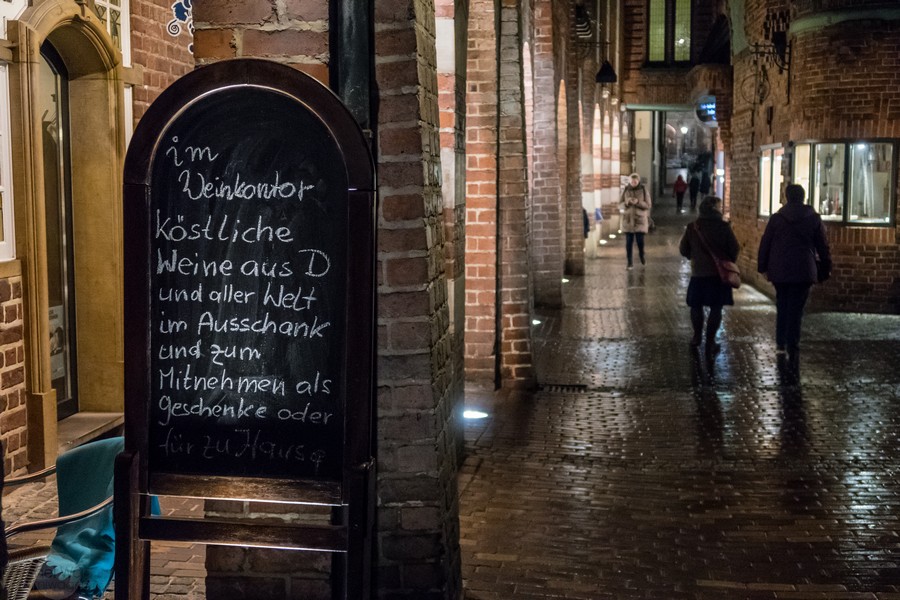 im
Weinkontor
köstliche
Weine aus D
und aller Welt
im Ausschank
und zum
Mitnehmen als
Geschenke oder
für zu Hause